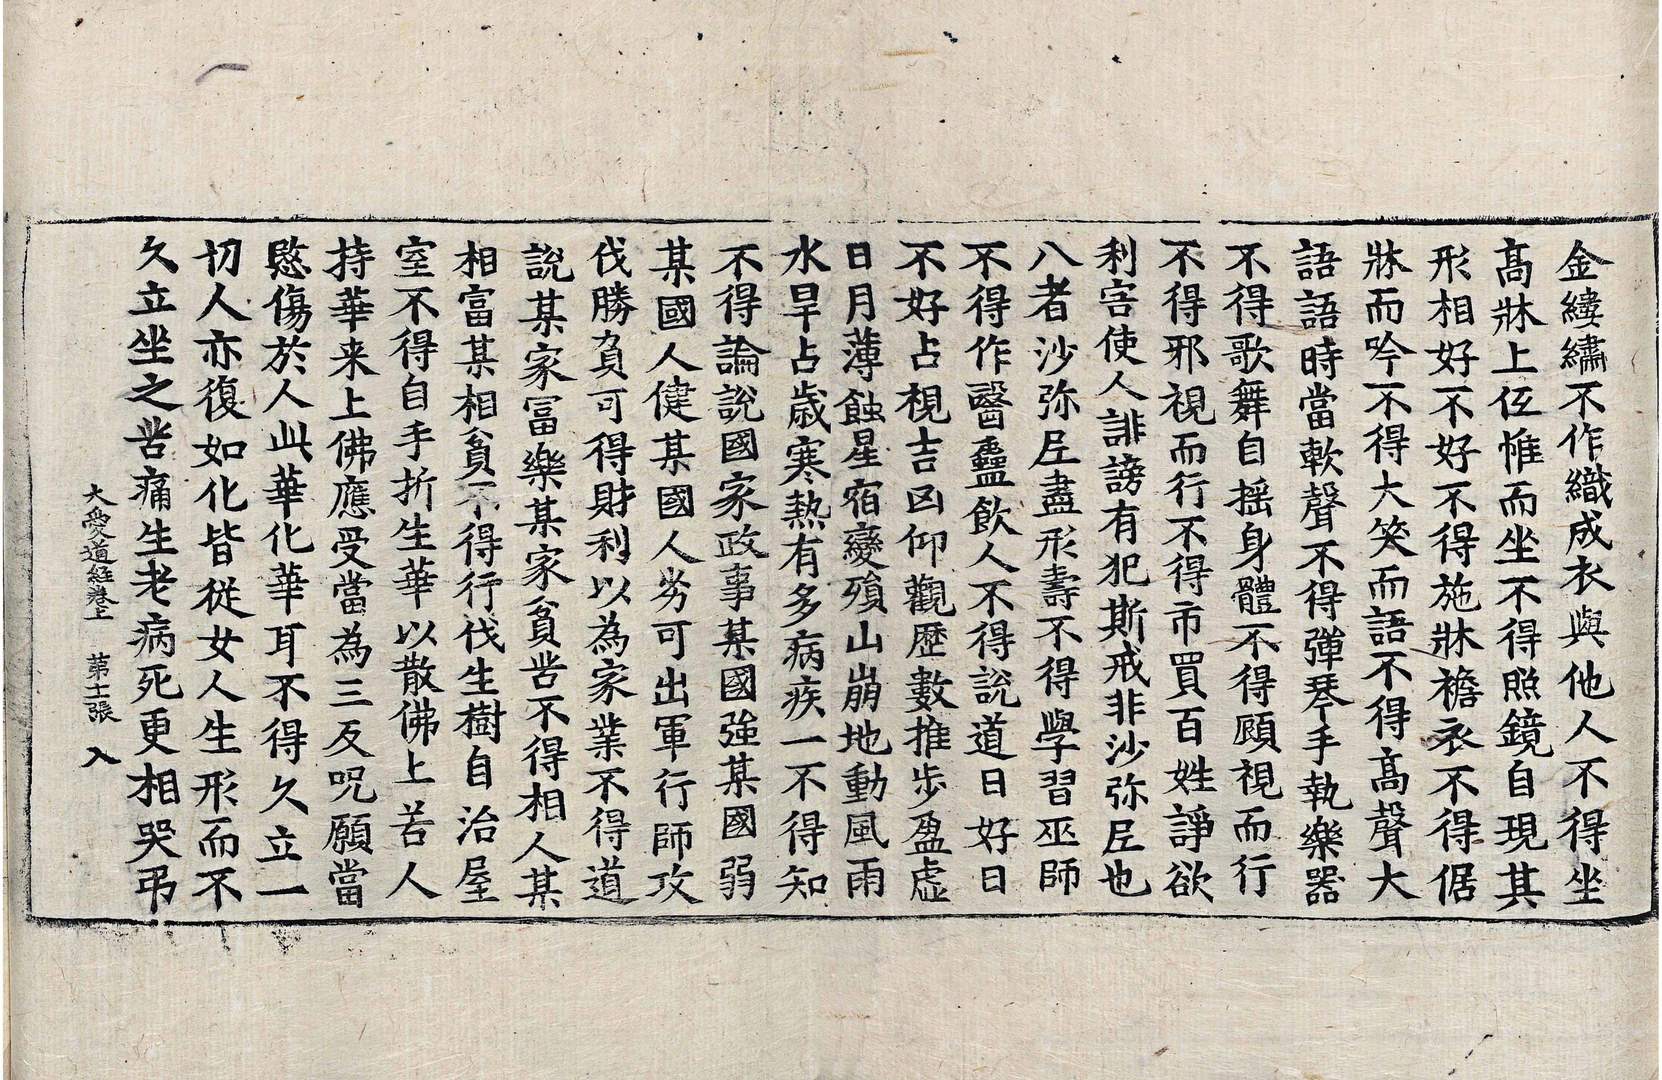 金縷繡不作織成衣與他人不得坐
髙牀上低惟而坐不得照鏡自現其
形相好不好不得施牀襜衣不得倨
牀而吟不得大笑而語不得髙聲大
語語時當軟聲不得彈琴手執樂器
不得歌舞自揺身體不得顧視而行
不得邪視而行不得市買百姓諍欲
利害使人誹謗有犯斯戒非沙弥尼也
八者沙弥尼盡形壽不得學習巫師
不得作醫蠱飲人不得說道日好日
不好占視吉凶仰觀歷數推步盈虛
日月薄蝕星宿變殞山崩地動風雨
水旱占歲寒熱有多病疾一不得知
不得論說國家政事某國強某國弱
某國人健某國人劣可出軍行師攻
伐勝負可得財利以為家業不得道
說某家冨樂某家貧苦不得相人某
相富某相貧不得行伐生樹自治屋
室不得自手折生華以散佛上若人
持華来上佛應受當為三反呪願當
愍傷於人此華化華耳不得久立一
切人亦復如化皆從女人生形而不
久立坐之苦痛生老病死更相哭弔
大愛道經卷上 第十二張 入